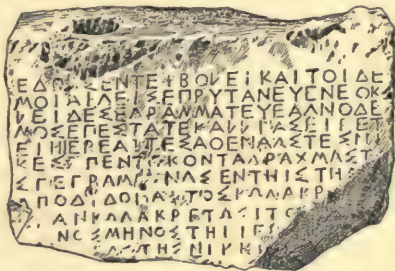 ΕΔΟΧΣΕΝΤΕΙΒΟΛΕΙΚΑΙΤΟΙΔΕ
ΜΟΙΑΙΓΕΙΣΕΠΡΥΤΑΝΕΥΕΝΕΟΚ
ΛΕΙΔΕΣΕΓΡΑΜΜΑΤΕΥΕΑΓΝΟΔΕ
ΜΟΣΕΠΕΣΤΑΤΕΚΑΛΛΙΑΣΕΙΠΕΤ
ΕΙΗΙΕΡΕΑΙΤΕΣΑΘΕΝΑΑΣΤΕΣΝΙ
ΚΕΣΠΕΝΤΕΚΟΝΤΑΔΡΑΧΜΑΣΤ
ΣΓΕΓΡΑΜΜΕΝΑΣΕΝΤΗΙΣΤΗ
ΠΟΔΙΔΟΝΑΙΤΟΣΚΩΛΑΚΡ
ΑΝΚΩΛΑΚΡΕΤΩΣΙΤΟ
ΝΟΣΜΗΝΟΣΤΗΙΙΕΡ
ΤΗΣΝΙΚΗ